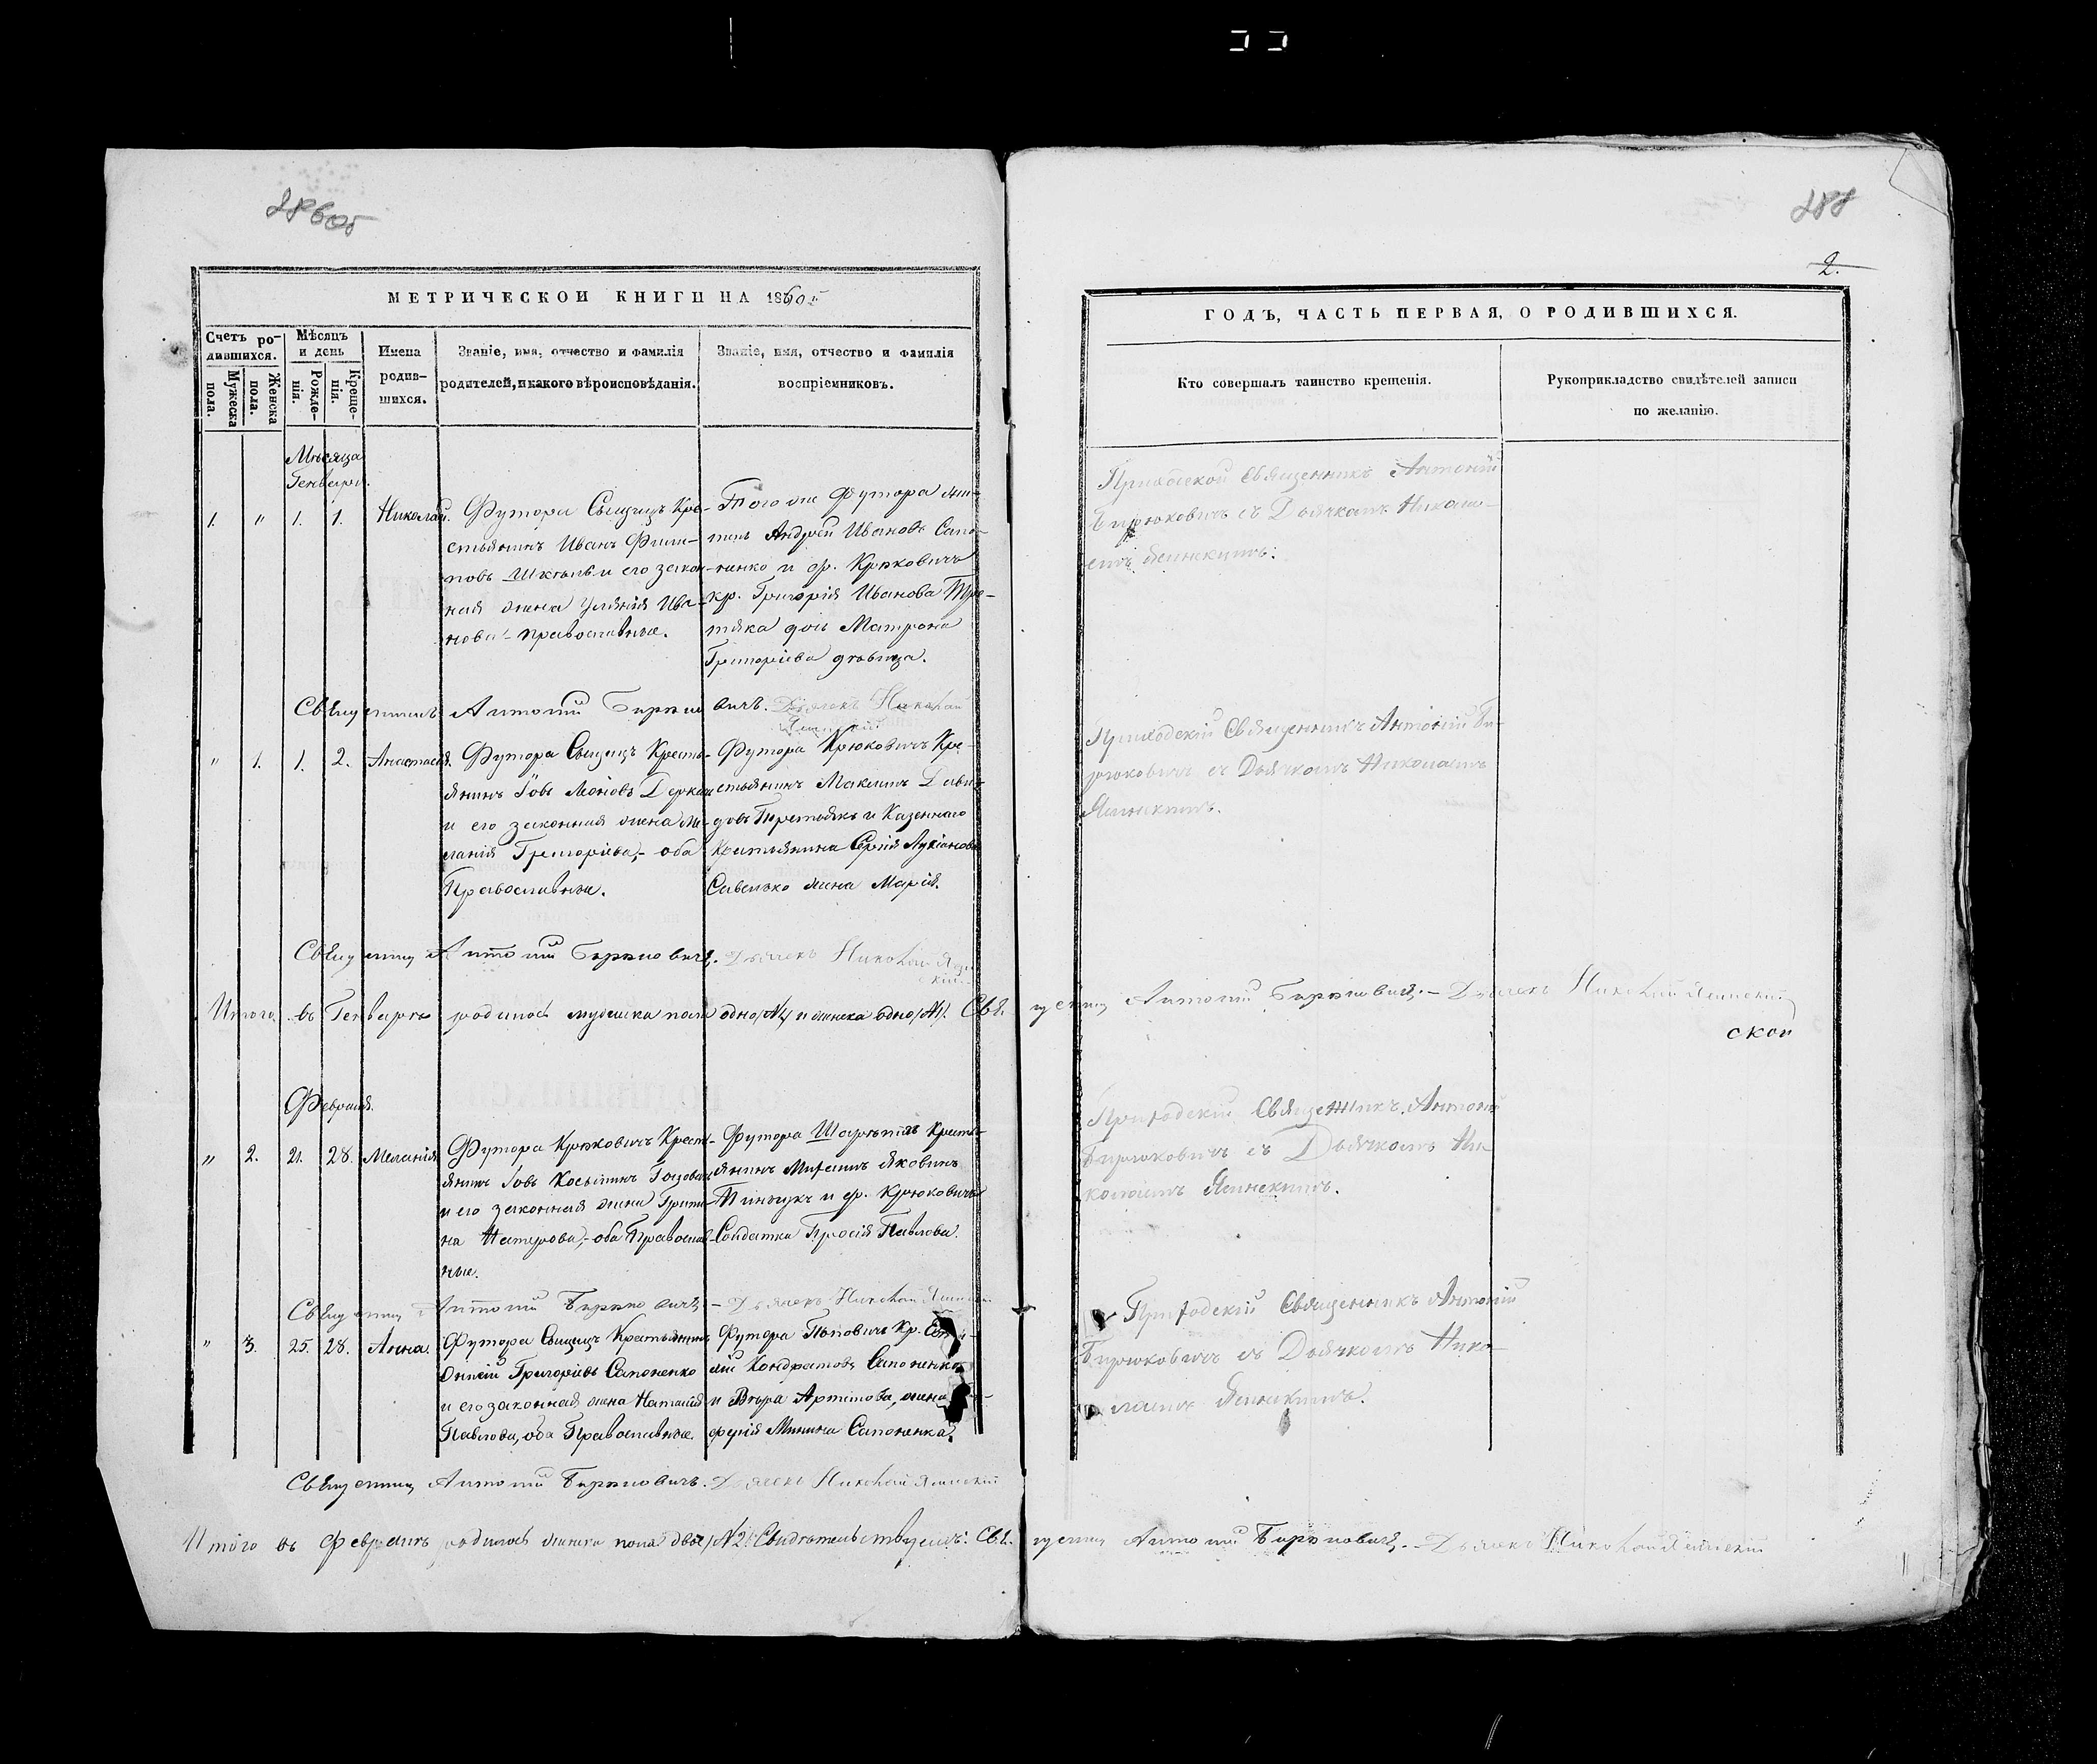 288
2.
МЕТРИЧЕСКОЙ КНИГИ НА 1860й
ГОДЪ, ЧАСТЬ ПЕРВАЯ, О РОДИВШИХСЯ.
Счетъ ро-
дившихся.
Мужеска
пола.
Женска
пола.
Мѣсяцъ
и день
Рожде-
нія.
Креще-
нія.
Имена
родив-
шихся.
Званіе, имя, отчество и фамилія
родителей, и какого вѣроисповѣданія.
Званіе, имя, отчество и фамилія
воспріемниковъ.
Кто совершалъ таинство крещенія.
Рукоприкладство свидѣтелей записи
по желанію.
Мѣсяца
Генваря.
1. " 1. 1. Николай.
Футора Свищицъ Кре-
стьянинъ Иванъ Фили-
повъ и его закон-
ная жена Ива-
нова - православные.
Того же Футора
Андрей Иванов Сапо-
ненко и ф. Крюковичъ
кр. Григорія Иванова Тре-
тяка дочь Матрона
Григоріева дѣвица.
Приходской Священникъ Антоній
Бирюковичъ съ Дьячкомъ Никола-
емъ Яминскимъ.
Священникъ Антоній Бирюковичъ. Дьячекъ Николай
Яминскій
" 1. 1. 2. Анастасія.
Футора Свищицъ Кресть-
янинъ Іовъ
и его законная жена Ме-
ланія Григоріева, - оба
Православные.
Футора Крюковичъ Кре-
стьянинъ Максимъ Дави-
довъ Третьякъ и Казеннаго
Крестьянина Сергія Лукіанова
Савенько жена Марія.
Приходскій Священникъ Антоній Би-
рюковичъ съ Дьячкомъ Николаемъ
Яминскимъ.
Священникъ Антоній Бирюковичъ. Дьячекъ Николай
Итого въ Генварѣ родилось мужеска пола одно /№1/ и женска одно /№1/. Священникъ Антоній Бирюковичъ. - Дьячекъ Николай Яминскій
ской
Февраля.
" 2. 21. 28. Меланія
Футора Крюковичъ Кресть-
янинъ Іовъ
и его законная жена
на оба Православ-
ные.
Футора Кресть-
янинъ
и ф. Крюковичъ
Солдатка Павлова.
Приходскій Священникъ Антоній
Бирюковичъ съ Дьячкомъ Ни-
колаемъ Яминскимъ.
Священникъ Антоній Бирюковичъ - Дьячекъ Николай Яминскій
" 3. 25. 28. Анна.
Футора Свищицъ Крестьянинъ
Григоріевъ Сапоненко
и его законная жена Наталія
Павлова, оба Православные.
Футора Поповичъ Кр.
Кондратовъ Сапоненко
и Вѣра Артемова, жена
Минина Сапоненка.
Приходскій Священникъ Антоній
Бирюковичъ съ Дьячкомъ Нико-
лаемъ Яминскимъ.
Священникъ Антоній Бирюковичъ. Дьячекъ Николай Яминскій
Итого въ Февралѣ родилось женска пола двое /№2/ Свидѣтельствуемъ: Священникъ Антоній Бирюковичъ. - Дьячекъ Николай Яминскій